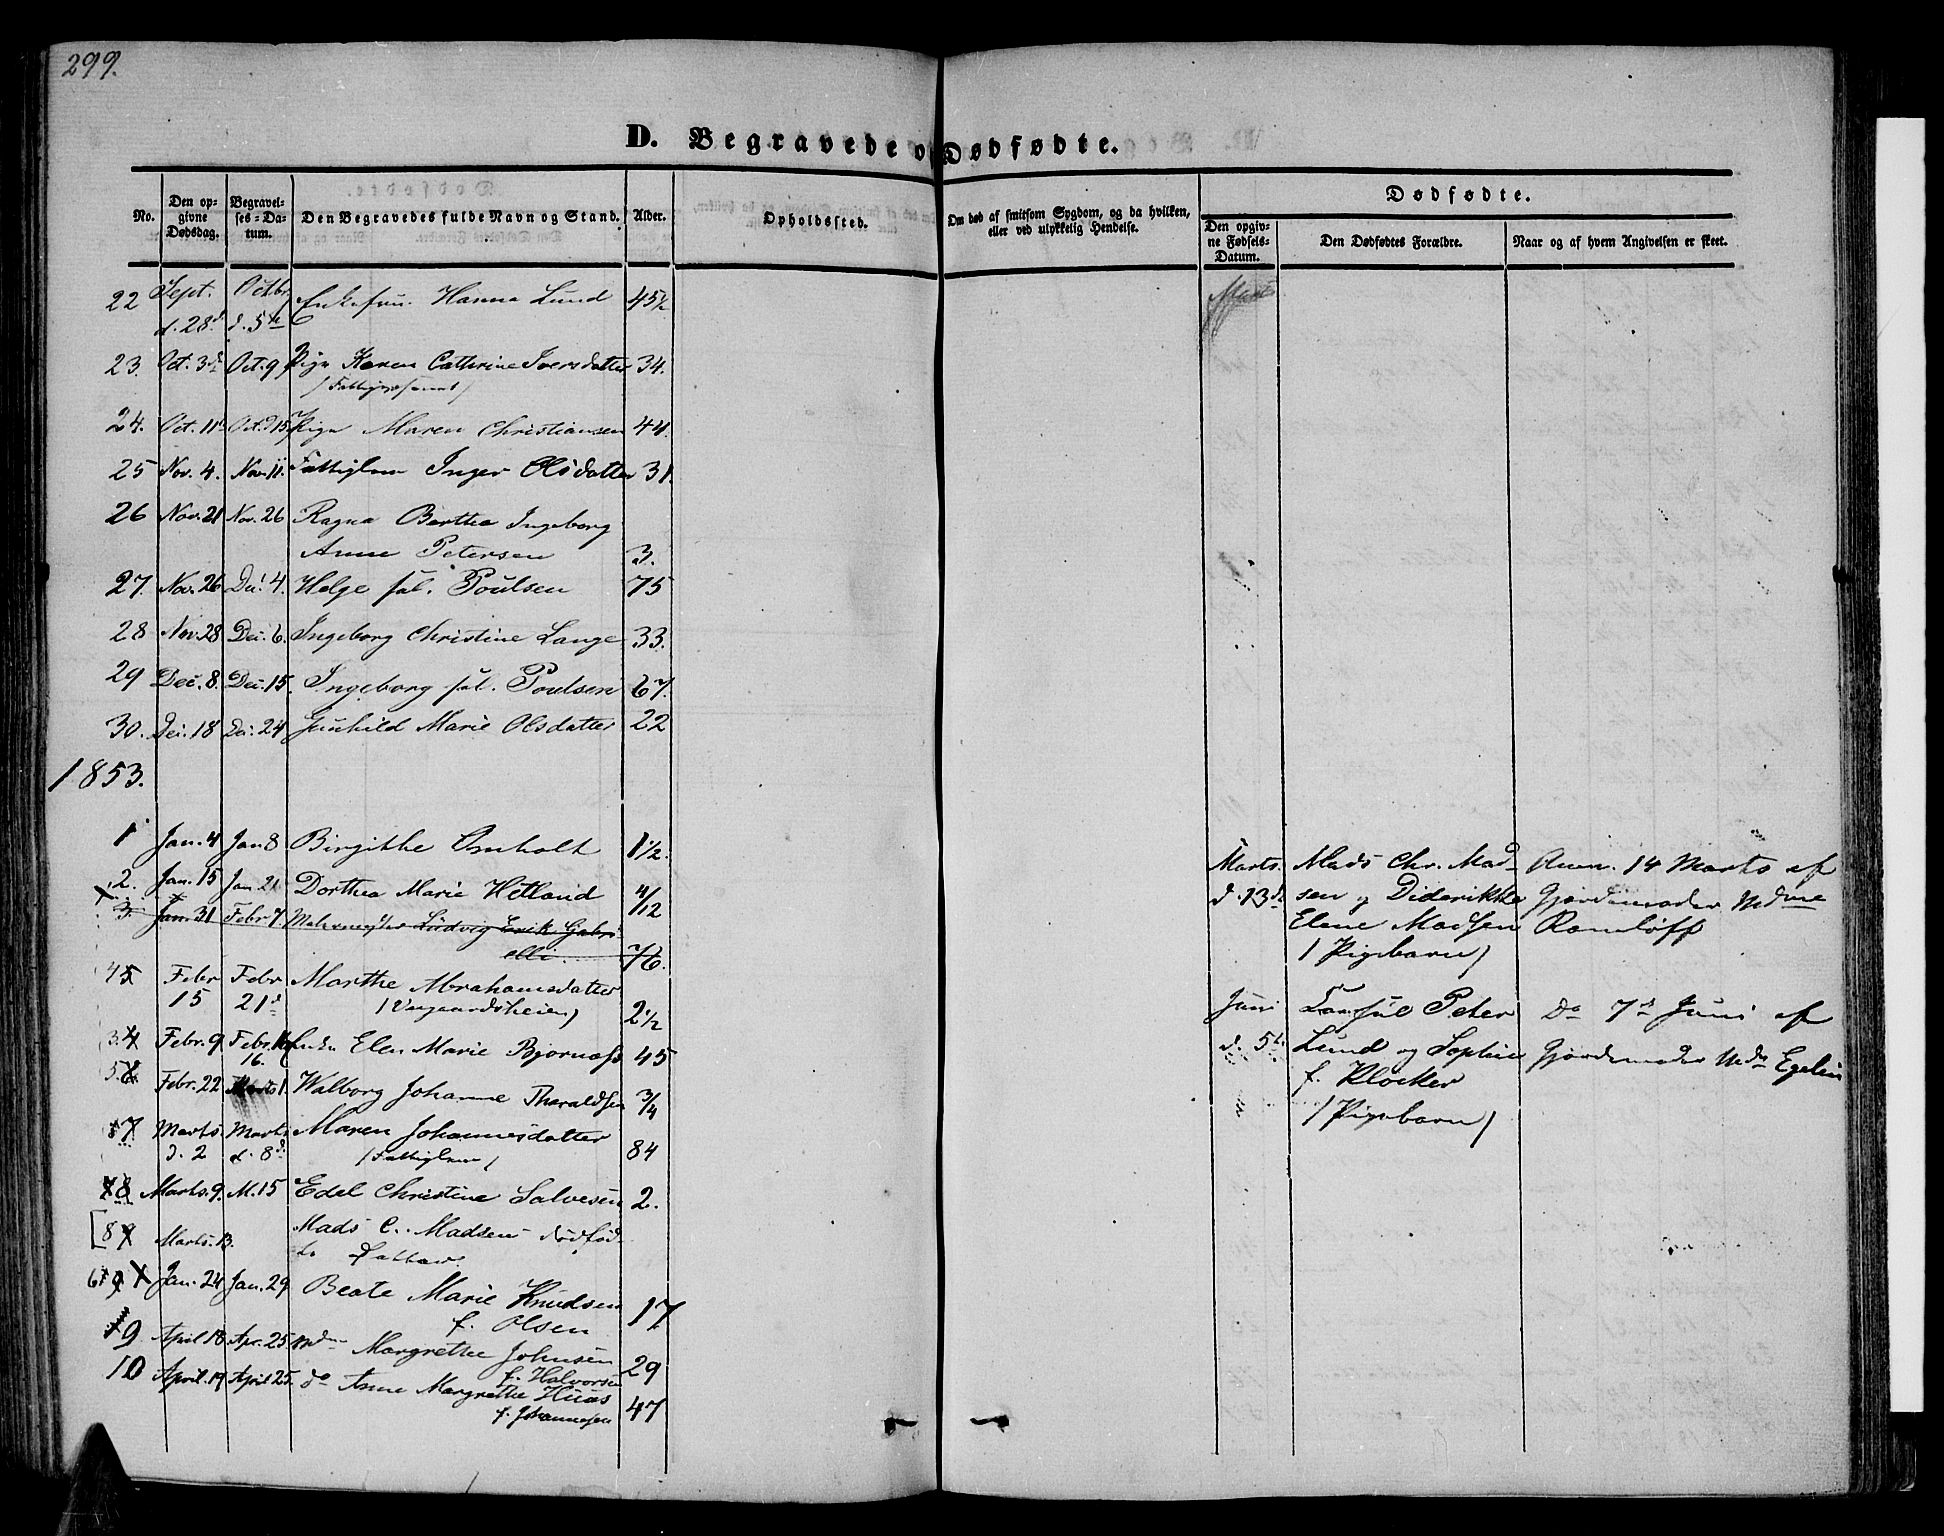 299.
D. Begravede o Dødfødte.
No. Den opgivne Dødsdag. Begravelses-Datum. Den Begravedes fulde Navn og Stand. Alder. Opholdssted. Om død af smitsom Sygdom, og da hvilken, eller ved ulykkelig Hendelse.
Dødfødte.
Den opgivne Fødsels-Datum. Den Dødfødtes Forældre. Naar og af hvem Angivelsen er skeet.
22 Sept. d. 28d Octbr. d. 5te Enkefru Hanna Lund 45½
23. Oct. 3d Oct. 9 Pige Karen Cathrine Iversdatter 34.
24. Oct. 11 Oct. 15 Pige Maren Christiansen 44.
25 Nov. 4. Nov. 11. Fattiglem Inger Olsdatter 31.
26 Nov. 21 Nov. 26 Ragna Berthe Ingeborg
Anne Petersen 3.
27. Nov. 26 Dec. 4. Helge sal. Poulsen 75
28 Nov. 28 Dec. 6. Ingeborg Christine Lange 33.
29 Dec. 8. Dec. 15. Ingeborg sal. Poulsen 67.
30. Dec. 18 Dec. 24 Gunhild Marie Olsdatter 22
1853.
1 Jan. 4 Jan 8 Birgithe Omholt 1½.
2. Jan. 15 Jan 21 Dorthea Marie Hetland 4/12
3. Jan. 31 Febr. 7 Ludvig Erik Gabri
elli 76.
4 Febr 15 Febr 21d Marthe Abrahamsdatter
/Vegaardsheien/ 2½
3. Febr. 9 Febr. 16. Enke Elen Marie Bjornæs 45
5. Febr. 22 Marts 1 Walborg Johanne Tharaldsen 3/4
7 Marts d. 2 Marts d. 8d Maren Johannesdatter
/Fattiglem/ 84
8 Marts. 9. M. 15 Edel Christine Salvesen 2.
[8 Marts. 13. Mads C. Madsen dødfød-
te
6 Jan. 24 Jan. 29 Beate Marie Knudsen
f. Olsen 17
9 April 18 Apr. 25 Mdm Margrethe Johnsen
f. Halvorsen 29
10 April. 19 April 25. do Anne Margrethe Huus
f. Johannesen 47
Marts. d. 13d
Mads Chr. Mad-
sen og Diderikke
Elene Madsen
/Pigebarn/
Anm. 14 Marts af
Gjordemoder Mdme
Ramløff
Juni d. 5t
Peter
Lund og Sophie
f. Kløcker
/Pigebarn/
Do 7d Juni af
Gjordemoder Mdm Egelin